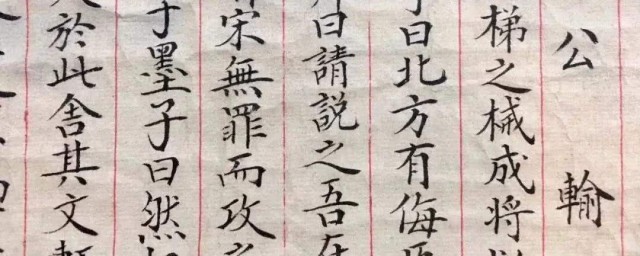 公輸
梯之械成將
曰北方有侮
曰請説之吾
宋無罪而攻
墨子曰然
於此舍其文